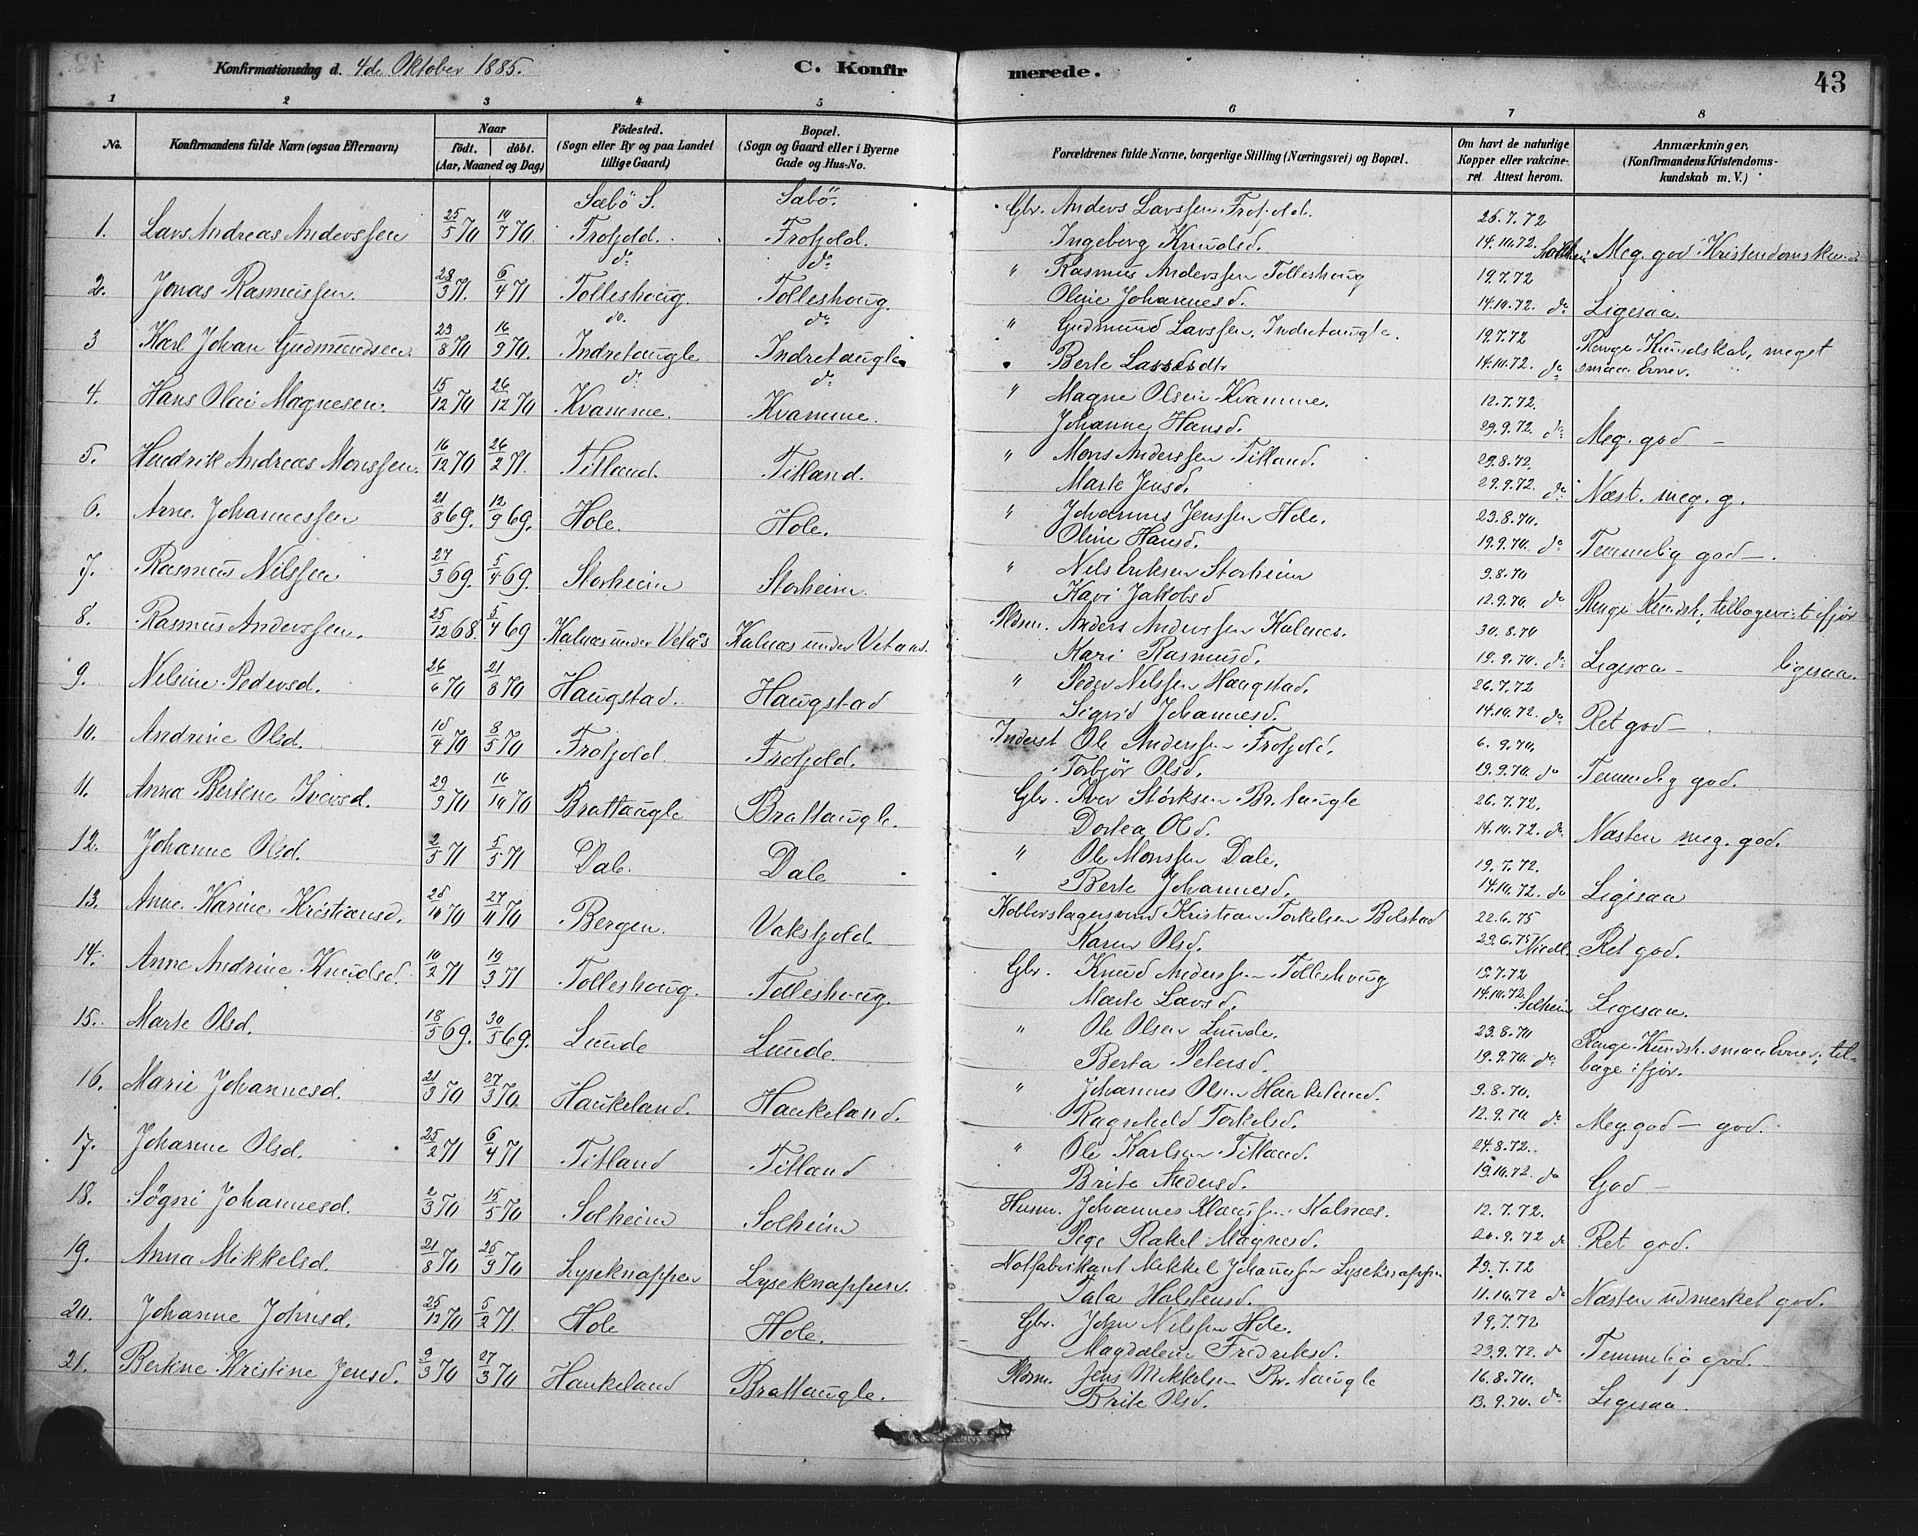 Konfirmationsdag d. 4de Oktober 1885. C. Konfirmerede. 43
1 2 3 4 5 6 7 8
No. Konfirmandens fulde Navn (ogsaa Efternavn) Naar födt. döbt. (Aar, Maaned og Dag) Födested. (Sogn eller By og paa Landet tillige Gaard) Bopæl. (Sogn og Gaard eller i Byerne Gade og Hus-No. Forældrenes fulde Navne, borgerlige Stilling (Næringsvei) og Bopæl. Om havt de naturlige Kopper eller vakcineret. Attest herom. Anmærkninger. (Konfirmandens Kristendomskundskab m. V.)
Sæbö S. Sæbö.
1. Lars Andreas Anderssen 25/5 70 10/7 70. Frotjold. Frotjold. Gbr. Anders Larssen Frotjold. 26.7.72
Ingeborg Knudsd. 14.10.72. Solheim Meg. god Kristendomskund
2. Jonas Rasmussen. 28/3 71. 6/4 71 do Tolleshoug. do Tolleshoug. " Rasmus Anderssen Tolleshoug 19.7.72
Oline Johannesd. 14.10.72. do Ligesaa.
3 Karl Johan Gudmundsen 23/8 70 16/9 70. do. Indretaugle do Indretaugle " Gudmund Larssen Indretaugle. 19.7.72 Ringe Kundskab, meget
Berte Lassesdtr 14.10.72. do smaa Evner.
4. Hans Olai Magnesen. 15/12 70 26/12 70 do Kvamme. do Kvamme. " Magne Olsen Kvamme. 12.7.72.
Johanne Hansd. 29.9.72. do Meg. god —
5. Hendrik Andreas Monssen. 16/12 70 26/2 71. Titland. Titland. " Mons Anderssen Titland. 29.8.72.
Marte Jensd. 29.9.72. do Næst. meg. g.
6. Arne Johannessen 21/8 69. 12/9 69. Hole. Hole. " Johannes Jenssen Hole. 23.8.70.
Oline Hansd. 19.9.70. do Temmelig god —.
7. Rasmus Nilssen 27/3 69. 5/4 69. Storheim Storheim. " Nils Eriksen Storheim 9.8.70
Kari Jakobsd 12.9.70. do Ringe Kundsk., tilbagevist ifjor
8. Rasmus Anderssen. 25/12 68. 5/4 69 Kalnæs under Vetås Kalnæs under Vetaas. Pldsm. Anders Anderssen Kalnæs. 30.8.70
Kari Rasmusd. 19.9.70. do Ligesaa — ligesaa.
9. Nelsine Pedersd. 26/6 70 21/8 70 Haugstad. Haugstad " Peder Nelssen Haugstad. 26.7.72
Sigrid Johannesd. 14.10.72. do Ret god —
10. Andrine Olsd. 10/4 70 8/5 70 Frotjold. Frotjold. Inderst Ole Anderssen Frotjold. 6.9.70.
Torbjør Olsd. 19.9.70. do Temmelig god.
11. Anna Bertine Iversd. 29/9 70 16/10 70 Brattaugle Brattaugle. Gbr. Iver Størksen Br.taugle 26.7.72.
Dortea Olsd. 14.10.72. do. Næsten meg. god.
12. Johanne Olsd. 2/5 71 5/5 71 Dale. Dale " Ole Monssen Dale. 19.7.72
Berte Johannesd. 14.10.72. do Ligesaa
13. Anne Karine Kristiansd. 28/10 70 27/11 70 Bergen. Vakstjold. Kobberslagersvend Kristian Torkelsen Bolstad 22.6.75
Karen Olsd. 29.6.75 Ret god.
14. Anne Andrine Knudsd. 10/2 71 19/3 71 Tolleshoug. Tolleshoug. Gbr. Knud Anderssen Tolleshoug 19.7.72
Marte Larsd. 14.10.72. Solheim Ligesaa.
15. Marte Olsd. 18/5 69. 30/5 69. Lunde Lunde. " Ole Olsen Lunde. 23.8.70 Ringe Kundsk. smaa Evner, til-
Berta Petersd. 19.9.70. do bage ifjor.
16. Marie Johannesd. 21/3 70 27/3 70. Haukeland. Haukeland. " Johannes Olsen Haukeland. 9.8.70.
Ragnhild Torkelsd. 12.9.70 do Meg. god — god.
17. Johanne Olsd. 25/2 71 6/4 71 Titland Titland " Ole Karlsen Titland. 24.8.72.
Brite Andersd. 19.10.72. do God —
18. Søgni Johannesd. 2/3 70 15/5 70 Solheim Solheim Husm. Johannes Klaussen Kalnæs. 12.7.72.
Rakel Magnesd. 20.9.72 do Ret god.
19. Anna Mikkelsd. 21/8 70 25/9 70 Lyseknappen Lyseknappen. Notfabrikant Mikkel Johannessen Lyseknappen 19.7.72
Tala Halstensd. 11.10.72 do Næsten udmerket god.
20. Johanne Johnsd. 25/12 70 5/2 71. Hole Hole. Gbr. John Nilssen Hole. 19.7.72
Magdalene Fredriksd. 23.9.72 do Temmelig god.
21. Bertine Kristine Jensd. 9/3 70 27/3 70 Haukeland Brattaugle. Pldsm. Jens Mikkelsen Br.taugle 16.8.70.
Brite Olsd. 13.9.70. do Ligesaa.